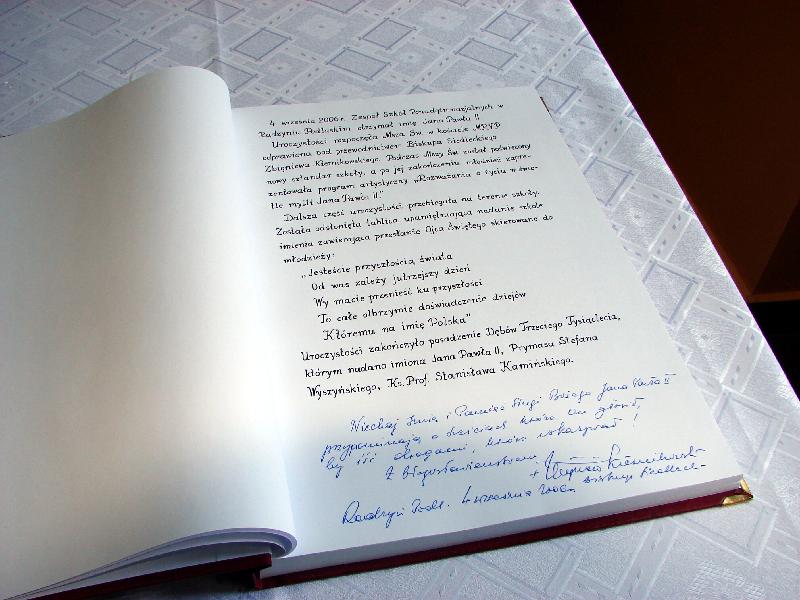 4 września 2006 r. Zespół Szkół Ponadgimnazjalnych w
Radzyniu Podlaskim otrzymał imię Jana Pawła II
Uroczystości rozpoczęła Msza Św. w kościele MBNP
odprawiona pod przewodnictwem Biskupa Siedleckiego
Zbigniewa Kiernikowskiego. Podczas Mszy Św. został poświęcony
nowy sztandar szkoły, a po jej zakończeniu młodzież zapre-
zentowała program artystyczny „Rozważania o życiu w świe-
tle myśli Jana Pawła II."
Dalsza część uroczystości przebiegała na terenie szkoły.
Została odsłonięta tablica upamiętniająca nadanie szkole
imienia zawierająca przesłanie Ojca Świętego skierowane do
młodzieży:
„Jesteście przyszłością świata
Od was zależy jutrzejszy dzień
Wy macie przenieść ku przyszłości
To całe olbrzymie doświadczenie dziejów
Któremu na imię Polska"
Uroczystości zakończyło posadzenie Dębów Trzeciego Tysiąclecia,
którym nadano imiona Jana Pawła II, Prymasa Stefana
Wyszyńskiego, Ks. Prof. Stanisława Kamińskiego.
Niechaj Imię i Pamięć Sługi Bożego Jana Pawła II
przypominają o wartościach które On głosił,
by iść drogami, które wskazywał!
Z błogosławieństwem
+ Zbigniew Kiernikowski
Radzyń Podl. 4 września 2006 biskup siedlecki